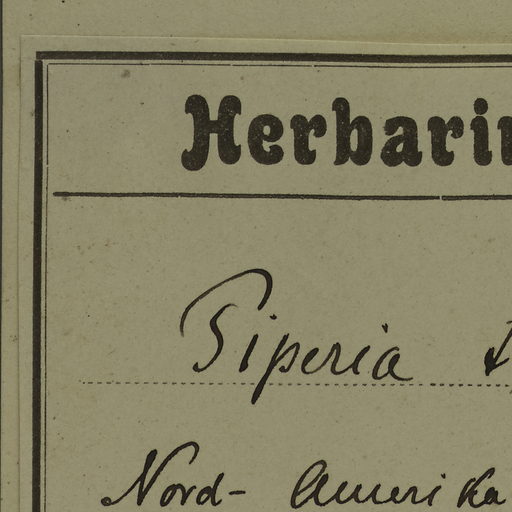 Herbari
Piperia
Nord- Amerika